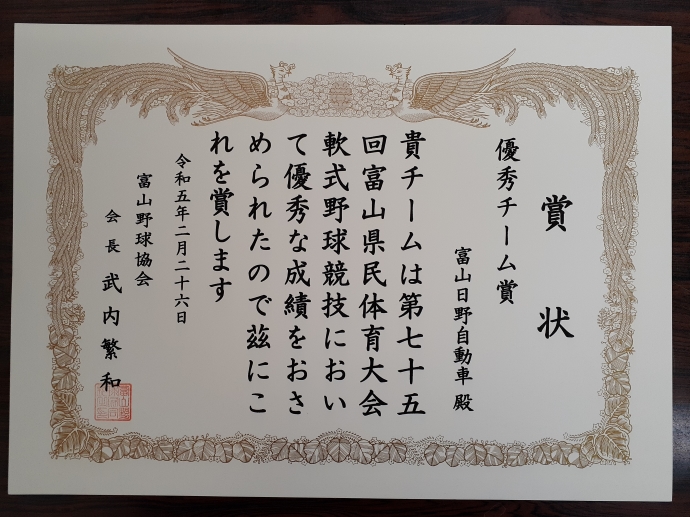 賞状
優秀チーム賞
富山日野自動車 殿
貴チームは第七十五
回富山県民体育大会
軟式野球競技におい
て優秀な成績をおさ
められたので茲にこ
れを賞します
令和五年二月二十六日
富山野球協会
会長 武内繁和